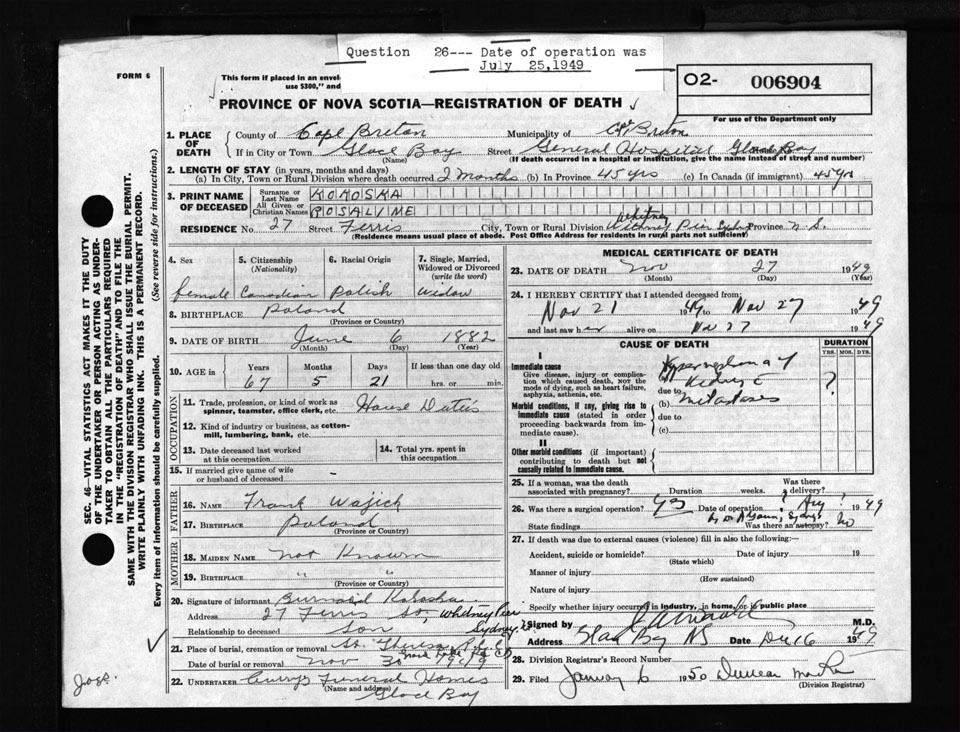 Question 26--- Date of operation was
July 25,1949
FORM 6
This form if placed in an envel-
use $300," and
O2- 006904
For use of the Department only
PROVINCE OF NOVA SCOTIA—REGISTRATION OF DEATH
SEC. 46—VITAL STATISTICS ACT MAKES IT THE DUTY
OF THE UNDERTAKER OR PERSON ACTING AS UNDER-
TAKER TO OBTAIN ALL THE PARTICULARS REQUIRED
IN THE "REGISTRATION OF DEATH" AND TO FILE THE
SAME WITH THE DIVISION REGISTRAR WHO SHALL ISSUE THE BURIAL PERMIT.
WRITE PLAINLY WITH UNFADING INK. THIS IS A PERMANENT RECORD.
(See reverse side for instructions.)
Every item of information should be carefully supplied.
1. PLACE OF DEATH
County of Cape Breton Municipality of Cape Breton
If in City or Town Glace Bay Street General Hospital Glace Bay
(Name) (If death occurred in a hospital or institution, give the name instead of street and number)
2. LENGTH OF STAY (in years, months and days)
(a) In City, Town or Rural Division where death occurred 2 months (b) In Province 45 yrs (c) In Canada (if immigrant) 45 yrs
3. PRINT NAME OF DECEASED
Surname or Last Name KOKOSKA
All Given or Christian Names ROSALIME
RESIDENCE No. 27 Street Ferris City, Town or Rural Division Whitney Pier Sydney Province N. S.
(Residence means usual place of abode. Post Office Address for residents in rural parts not sufficient)
4. Sex
female
5. Citizenship
(Nationality)
Canadian
6. Racial Origin
Polish
7. Single, Married,
Widowed or Divorced
(write the word)
Widow
8. BIRTHPLACE Poland
(Province or Country)
9. DATE OF BIRTH June 6 1882
(Month) (Day) (Year)
10. AGE in
Years Months Days If less than one day old
67 5 21 hrs. or min.
OCCUPATION
11. Trade, profession, or kind of work as
spinner, teamster, office clerk, etc. House Duties
12. Kind of industry or business, as cotton-
mill, lumbering, bank, etc.
13. Date deceased last worked
at this occupation
14. Total yrs. spent in
this occupation
15. If married give name of wife
or husband of deceased
FATHER
16. NAME Frank Wajick
17. BIRTHPLACE Poland
(Province or Country)
MOTHER
18. MAIDEN NAME Not Known
19. BIRTHPLACE " "
(Province or Country)
20. Signature of informant Burnard Kokoska
Address 27 Ferris St, Whitney Pier
Sydney
Relationship to deceased Son
21. Place of burial, cremation or removal St. Theresa
Date of burial or removal Nov 30 1949
22. UNDERTAKER Currys Funeral Homes
(Name and address) Glace Bay
MEDICAL CERTIFICATE OF DEATH
23. DATE OF DEATH Nov 27 1949
(Month) (Day) (Year)
24. I HEREBY CERTIFY that I attended deceased from:
Nov 21 1949 to Nov 27 1949
and last saw her alive on Nov 27 1949
CAUSE OF DEATH
DURATION
YRS. MOS. DYS.
I
Immediate cause
Give disease, injury or complica-
tion which caused death, not the
mode of dying, such as heart failure,
asphyxia, asthenia, etc.
Hypernephroma of
Kidney c
due to
(b) metastases
?
Morbid conditions, if any, giving rise to
immediate cause (stated in order
proceeding backwards from im-
mediate cause).
due to
(c)
II
Other morbid conditions (if important)
contributing to death but not
causally related to immediate cause.
25. If a woman, was the death
associated with pregnancy? Duration weeks.
Was there
a delivery?
26. Was there a surgical operation? Yes Date of operation ? Aug ? 1949
State findings Was there an autopsy? No
27. If death was due to external causes (violence) fill in also the following:—
Accident, suicide or homicide? Date of injury 19
(State which)
Manner of injury
(How sustained)
Nature of injury
Specify whether injury occurred in industry, in home, or in public place
Signed by M.D.
Address Glace Bay NS Date Dec 16 1949
28. Division Registrar's Record Number
29. Filed January 6 1950 Duncan
(Division Registrar)